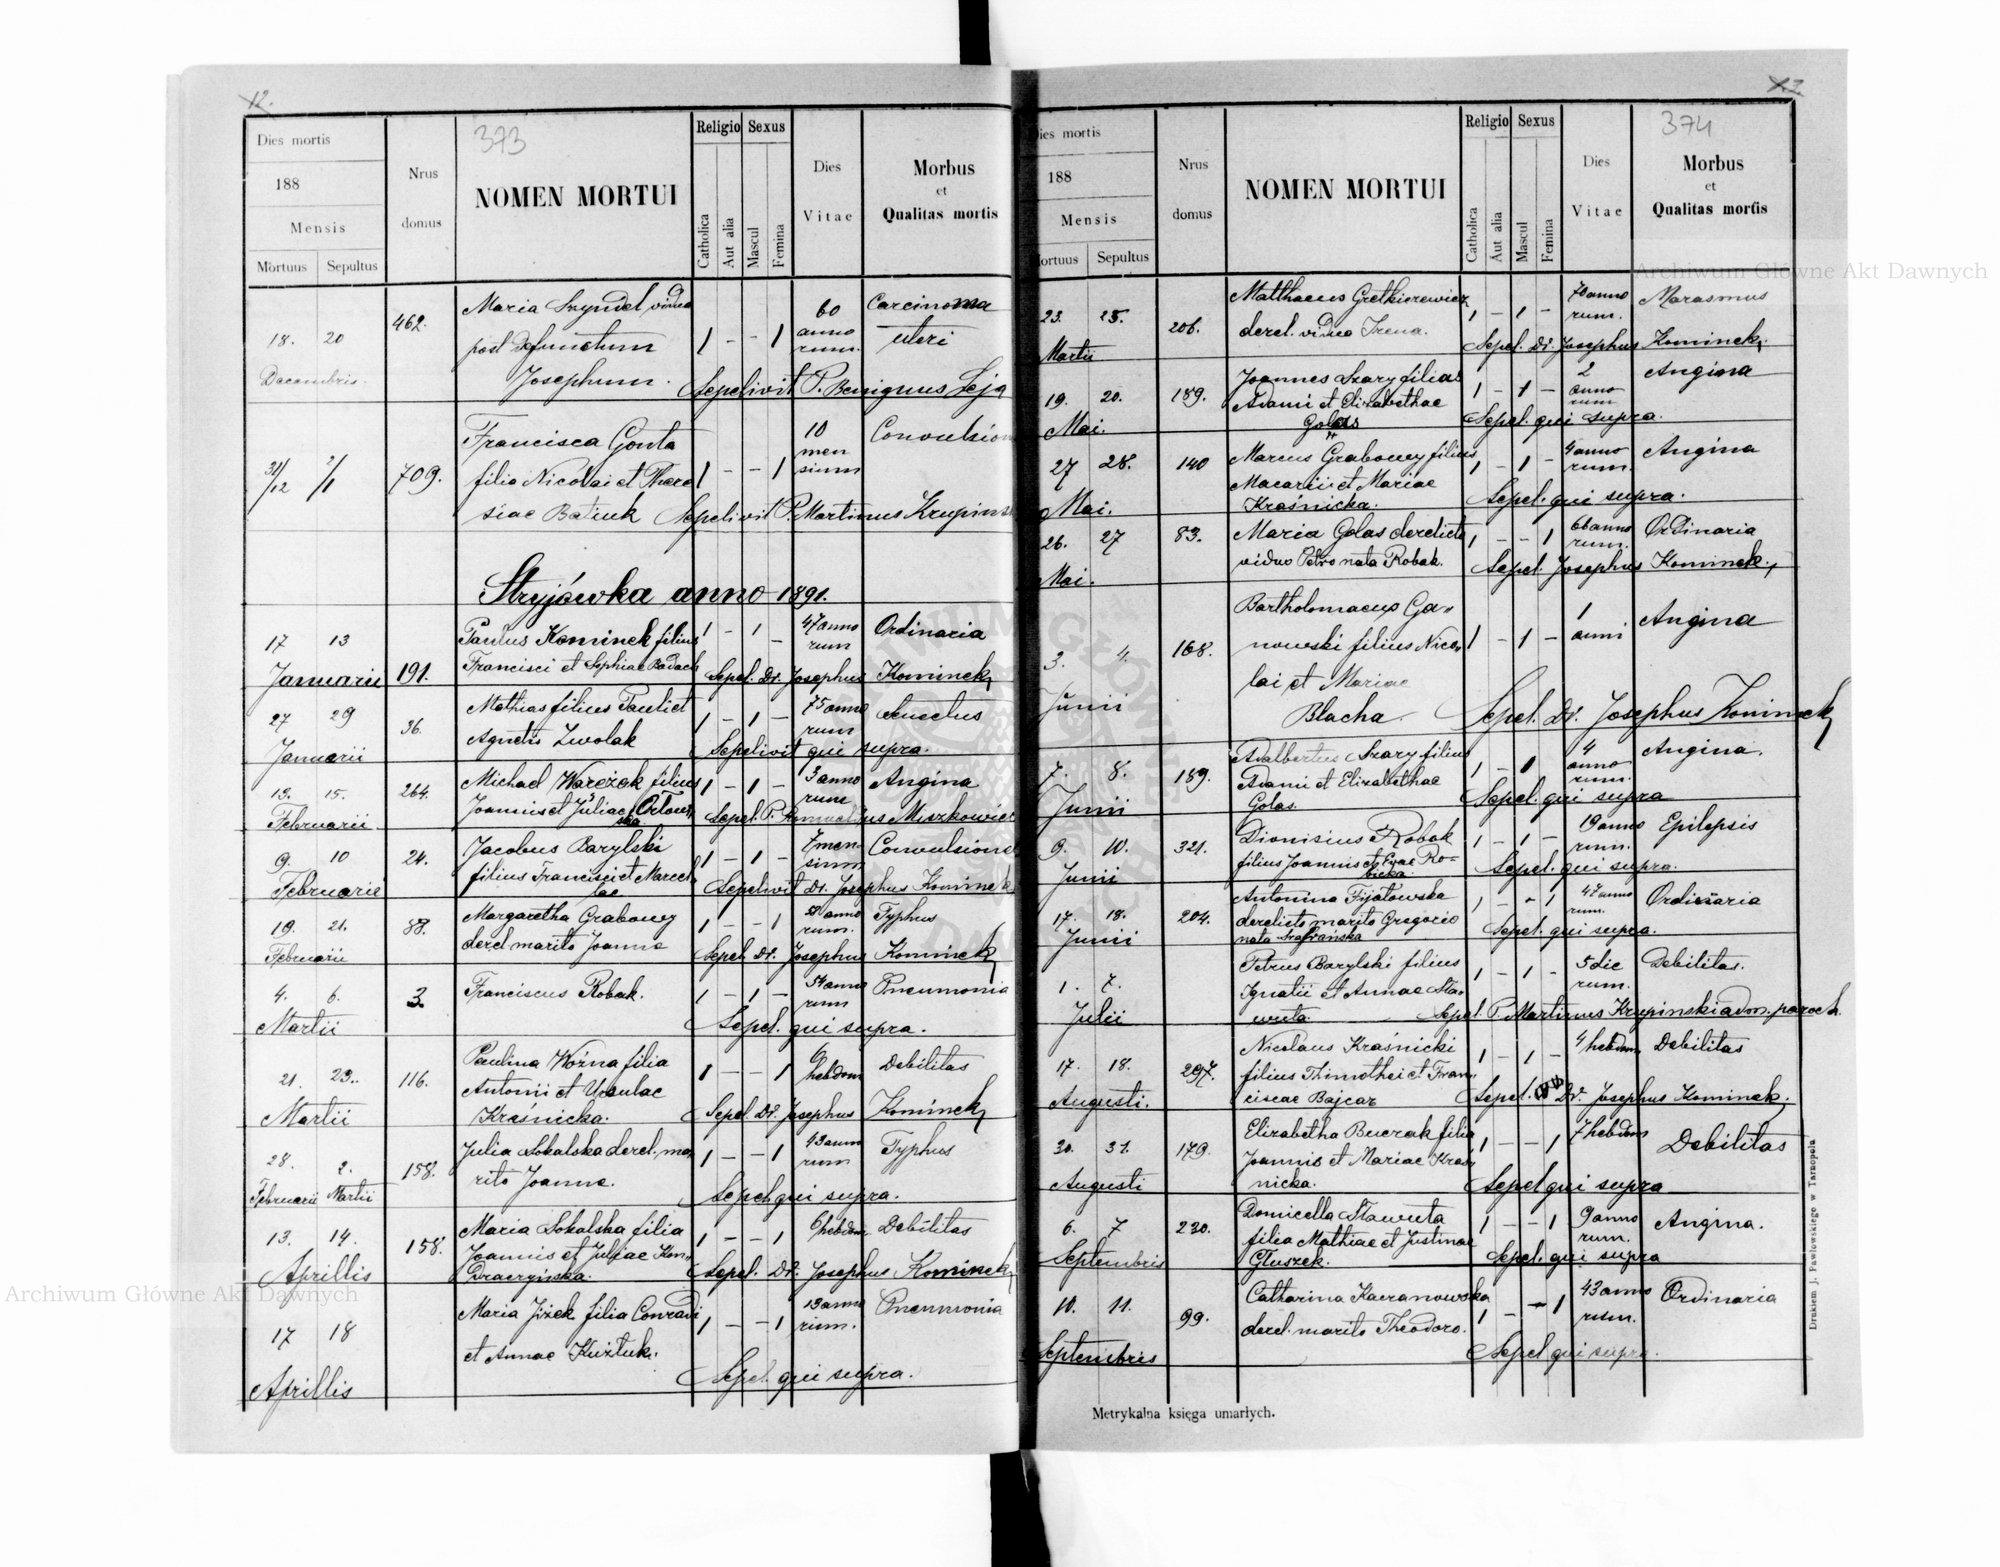 12.
373
Dies mortis
188
Mensis
Mortuus Sepultus
Nrus domus
NOMEN MORTUI
Religio
Catholica
Aut alia
Sexus
Mascul
Femina
Dies Vitae
Morbus
et
Qualitas mortis
18. 20 462. Maria Szyndel vidua 1 - - 1 60 Carcinoma
Decembris. post defunctum anno rum. uteri
Josephum. Sepelivit P. Benignus Seja
31/12 2/1 709. Francisca Gonta 10 Convulsion
filia Nicolai et There 1 - - 1 men sium
siae Batiuk Sepelivit P. Martinus Krupins
Stryjówka anno 1891.
17 13 Paulus Kominek filius 1 - 1 - 47 anno rum Ordinaria
Januarii 191. Francisci et Sophiae Badach Sepel. Dr. Josephus Kominek
27 29 36. Mathias filius Pauli et 1 - 1 - 75 anno rum Senectus
Januarii Agnetis Zwolak Sepelivit qui supra.
13. 15. 264. Michael Warczok filius 1 - 1 - 3 anno rum Angina
Februarii. Joannis et Juliae Sepel. P. Miszkowicz
9. 10 24. Jacobus Barylski 1 - 1 - 7 men- sium Convulsione
Februarii filius Francisci et Marcel
lae Sepelivit Dr. Josephus Kominek
19. 21. 88. Margaretha Grabowy 1 - - 1 58 anno rum. Typhus
Februarii derel. marito Joanne Sepel. Dr. Josephus Kominek
4. 6. 3. Franciscus Robak. 1 - 1 - 54 anno rum Pneumonia
Martii Sepel. qui supra.
21. 23. 116. Paulina Woźna filia 1 - - 1 6 hebdom Debilitas
Martii Antonii et Ursulae
Kraśnicka. Sepel. Dr. Josephus Kominek
28. 2. 158. Julia Sokalska derel. ma 1 - - 1 43 anno rum Typhus
Februarii Martii rito Joanne. Sepel. qui supra.
13. 14. 158. Maria Sokalska filia 1 - - 1 6 hebdom Debilitas
Aprillis Joannis et Juliae Kon-
draczyńska. Sepel. Dr. Josephus Kominek
17 18 Maria Jżek filia Conradi 1 - - 1 13 anno rum. Pneumonia
Aprillis et Annae Kużtuk. Sepel. qui supra.
374
Dies mortis
188
Mensis
Mortuus Sepultus
Nrus domus
NOMEN MORTUI
Religio
Catholica
Aut alia
Sexus
Mascul
Femina
Dies Vitae
Morbus
et
Qualitas mortis
23. 25. 206. Matthaeus Gretkierewicz 1 - 1 - 70 anno rum. Marasmus
Martii derel. vidua Irena. Sepel. Dr. Josephus Kominek
19. 20. 189. Joannes Szary filius 1 - 1 - 2 anno rum Angina
Mai. Adami et Elizabethae
Golas Sepel. qui supra.
27 28. 140 Marcus Grabowy filius 1 - 1 - 4 anno rum. Angina
Mai. Macarii et Mariae
Kraśnicka. Sepel. qui supra.
26. 27 83. Maria Golas derelicto 1 - - 1 66 anno rum. Ordinaria
Mai. viduo Petro nata Robak. Sepel. Josephus Kominek
3. 4. 168. Bartholomaeus Ga- 1 anni Angina
nowski filius Nico- 1 - 1 -
Junii lai et Mariae
Blacha. Sepel. Dr. Josephus Kominek
7. 8. 189. Adalbertus Szary filius 1 - 1 - 4 anno rum. Angina.
Junii Adami et Elizabethae
Golas. Sepel. qui supra
9. 10. 321. Dionisius Robak 1 - 1 - 19 anno rum. Epilepsis
Junii filius Joannis et Evae Ro-
bicka. Sepel. qui supra.
17. 18. 204. Antonina Fijałowska 1 - - 1 47 anno rum. Ordinaria
Junii derelicto marito Gregorio
nata Sepel. qui supra.
1. 7. Petrus Barylski filius 1 - 1 - 5 die rum. Debilitas.
Julii Ignatii et Annae Sta-
wuta. Sepel. P. Martinus Krupinski adm. paroch.
17. 18. 297. Nicolaus Kraśnicki 1 - 1 - 4 hebdom Debilitas
Augusti. filius Thimothei et Fran
ciscae Bajcar Sepel. Dr. Josephus Kominek.
30. 31. 179. Elizabetha Buczak filia 1 - - 1 7 hebdom Debilitas
Augusti Joannis et Mariae Kraś-
nicka. Sepel. qui supra
6. 7 220. Domicella Stawuta 1 - - 1 9 anno rum. Angina.
Septembris filia Mathiae et Justinae
Głuszek. Sepel. qui supra
10. 11. 99. Catharina Kaeranowska 1 - - 1 43 anno rum. Ordinaria
Septembris derel. marito Theodoro. Sepel. qui supra.
Metrykalna księga umarłych.
Drukiem J. Pawłowskiego w Tarnopolu
Archiwum Główne Akt Dawnych
Archiwum Główne Akt Dawnych